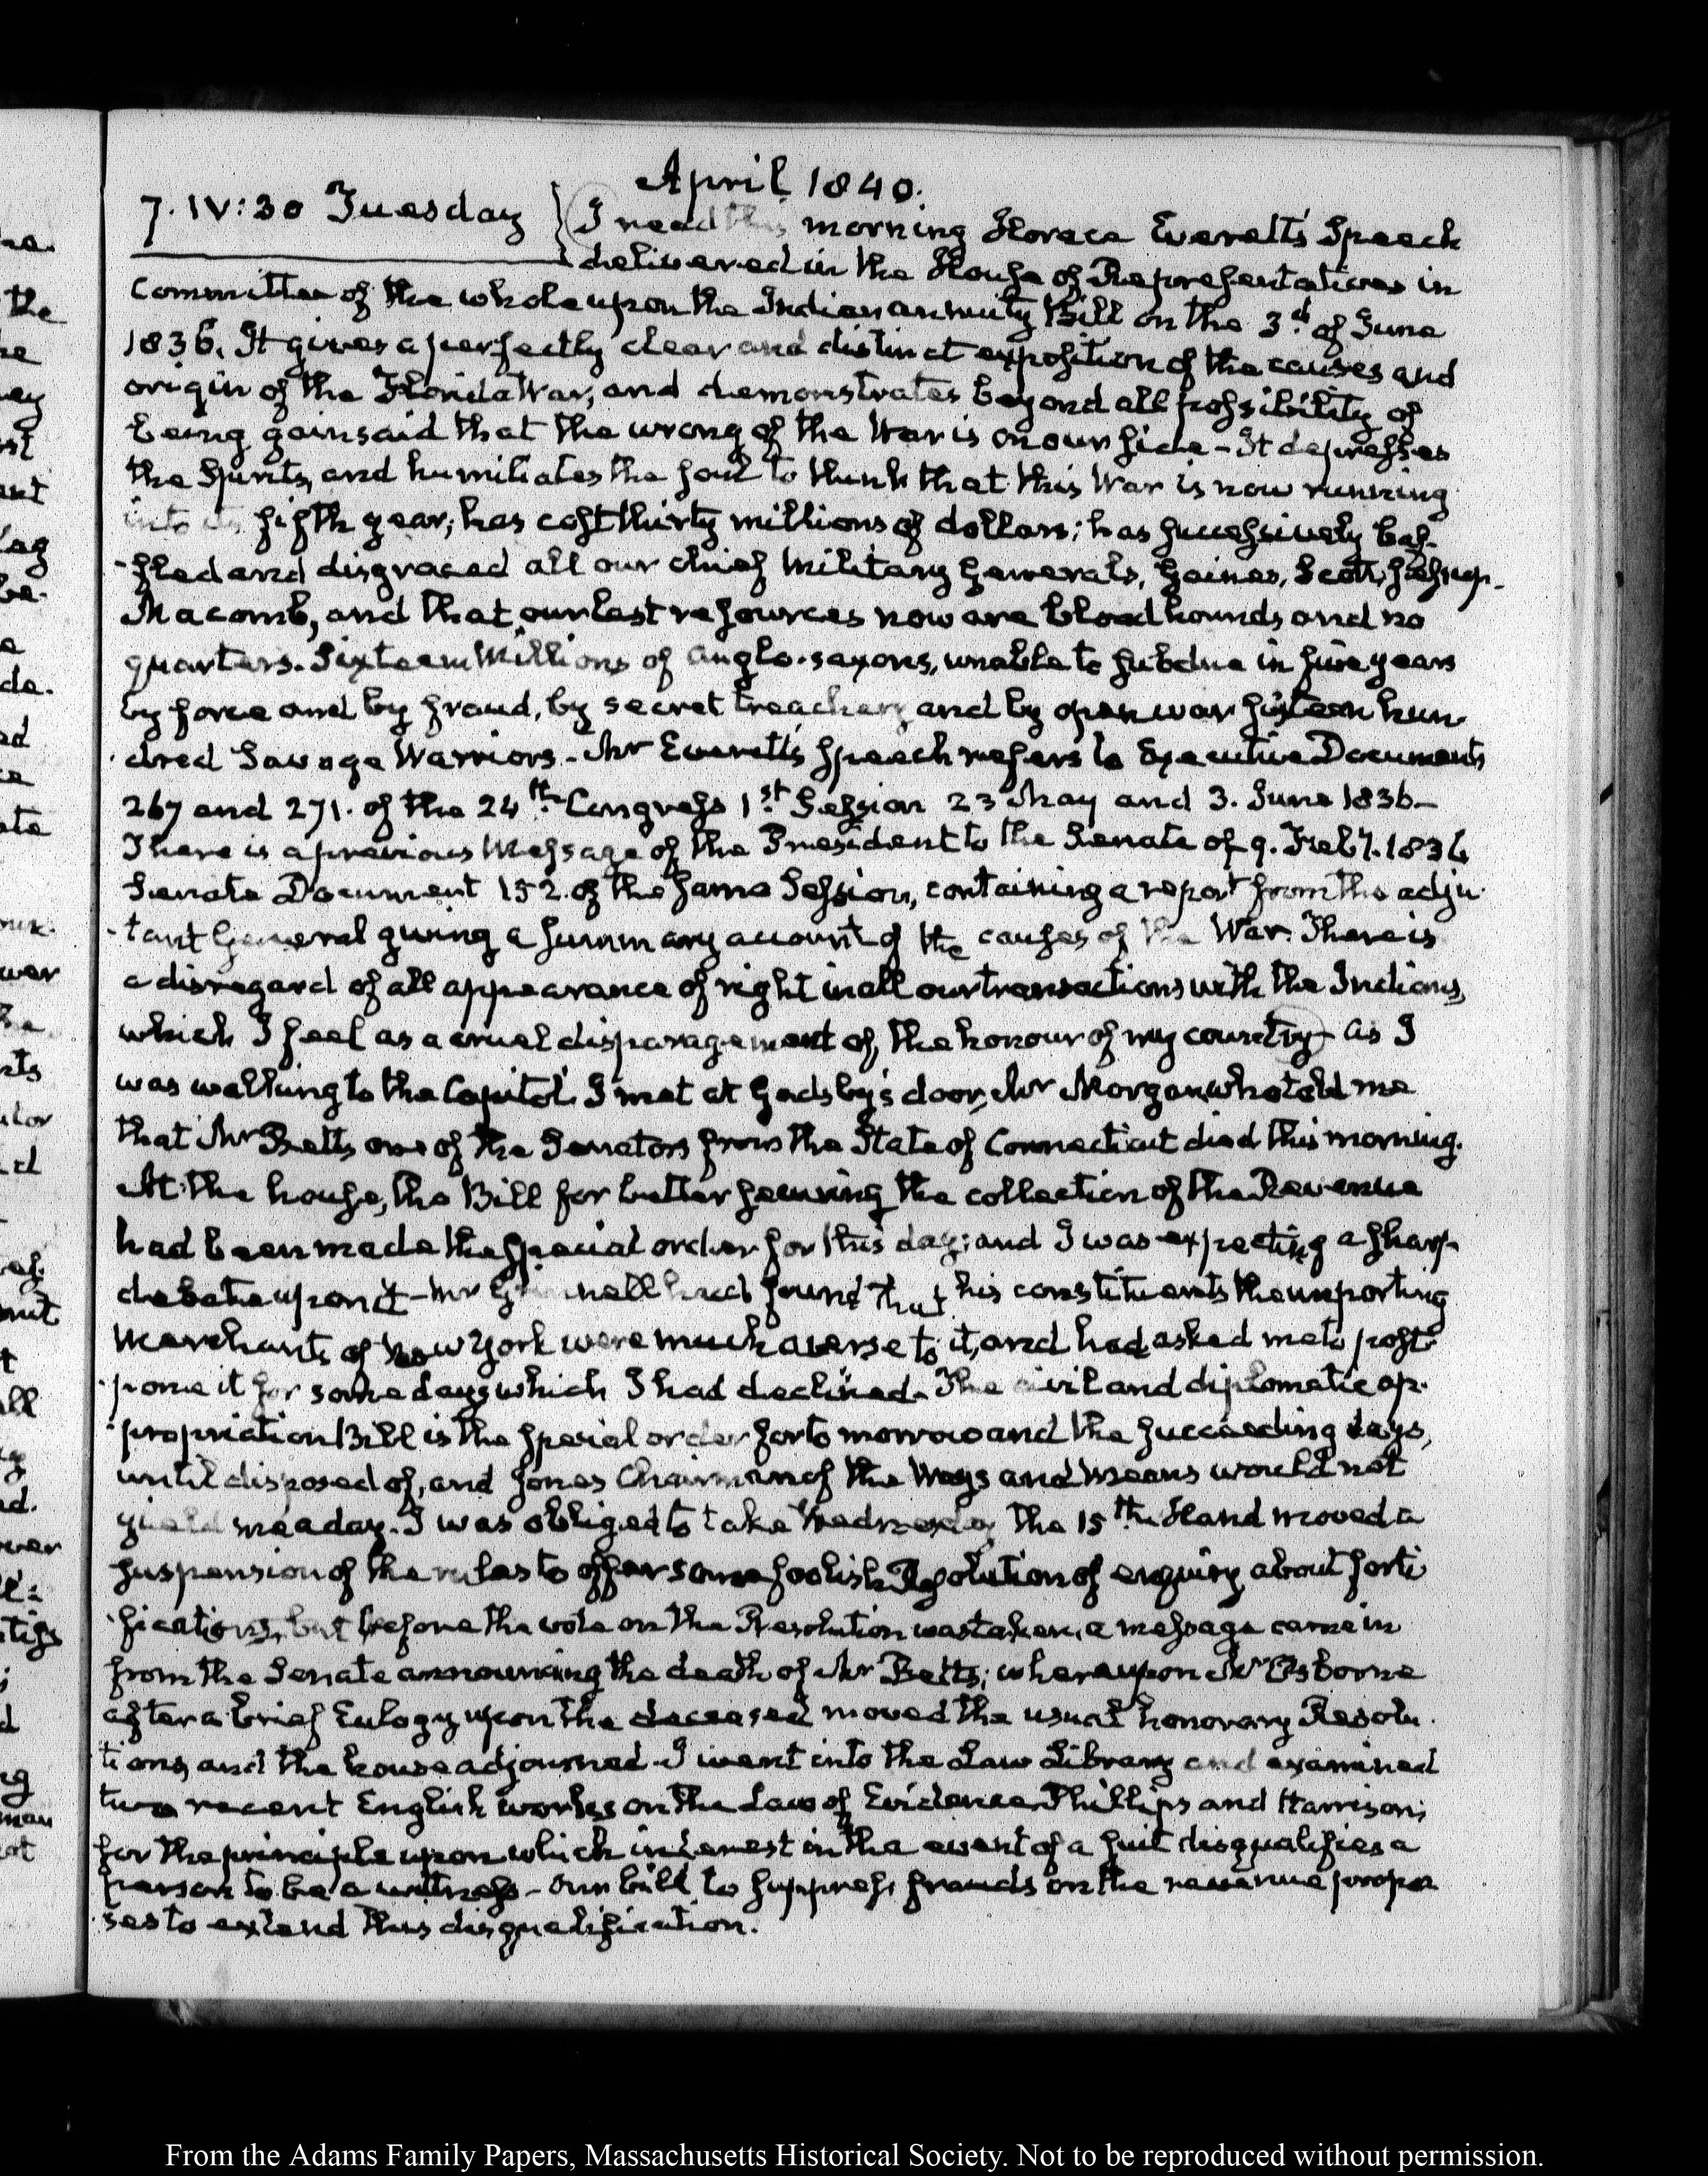 April 1840.
7. IV:30 Tuesday
I read this morning Horace Everett's Speech
delivered in the House of Representatives in
Committee of the whole upon the Indian annuity Bill on the 3.d of June
1836. It gives a perfectly clear and distinct exposition of the causes and
origin of the Florida War, and demonstrates beyond all possibility of
being gainsaid that the wrong of the War is on our side - It depresses
the Spirits, and humiliates the soul to think that this War is now running
into its fifth year; has cost thirty millions of dollars; has successively baf-
-fled and disgraced all our chief Military Generals, Gaines, Scott, Jesup,
Macomb, and that our last resources now are bloodhounds and no
quarters. Sixteen Millions of anglo-saxons, unable to subdue in five years
by force and by fraud, by secret treachery and by open war sixteen hun-
dred Savage Warriors - Mr Everett's speech refers to Executive Documents
267 and 271. of the 24th Congress 1st Session 23 May and 3. June 1836 -
There is a previous Message of the President to the Senate of 9. Feby. 1836
Senate Document 152. of the same Session, containing a report from the adju-
-tant General giving a summary account of the causes of the War. There is
a disregard of all appearance of right in all our transactions with the Indians,
which I feel as a cruel disparagement of the honour of my country - As I
was walking to the Capitol, I met at Gadsby's door, Mr Morgan who told me
that Mr Betts one of the Senators from the State of Connecticut died this morning.
At the house, the Bill for better securing the collection of the Revenue
had been made the special order for this day; and I was expecting a sharp
debate upon it - Mr Grinnell had found that his constituents the importing
Merchants of New York were much averse to it, and had asked me to post-
-pone it for some days which I had declined - The civil and diplomatic ap-
-propriation Bill is the special order for to morrow and the succeeding days,
until disposed of, and Jones Chairman of the Ways and Means would not
yield me a day. I was obliged to take Wednesday the 15th. Hand moved a
suspension of the rules to offer some foolish Resolution of enquiry about forti
-fications, but before the vote on the Resolution was taken, a message came in
from the Senate announcing the death of Mr Betts; whereupon Mr Osborne
after a brief Eulogy upon the deceased moved the usual honorary Resolu-
tions and the house adjourned - I went into the Law Library and examined
two recent English works on the Law of Evidence Phillips and Harrison;
for the principle upon which interest in the event of a suit disqualifies a
person to be a witness - Our bill to suppress frauds on the revenue propo-
-ses to extend this disqualification.
From the Adams Family Papers, Massachusetts Historical Society. Not to be reproduced without permission.